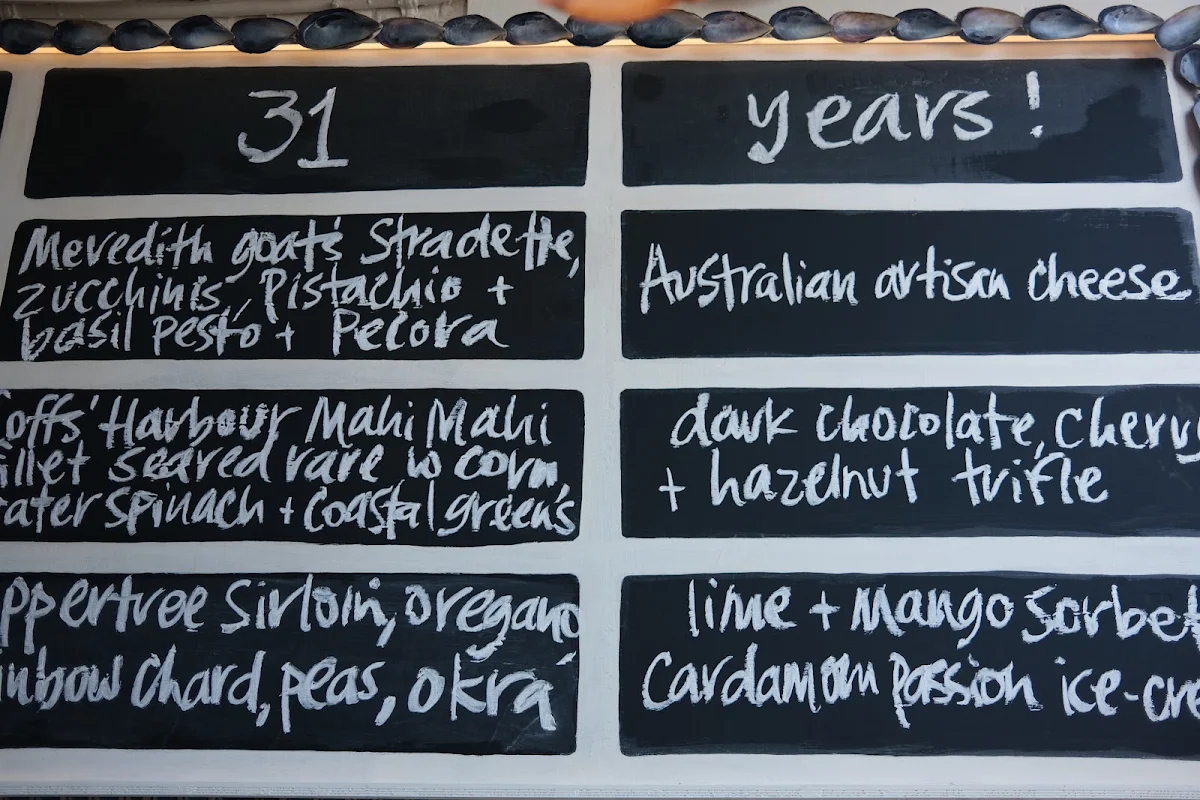 31
years!
Meredith goat's Stradette,
zucchinis, Pistachio +
basil pesto + Pecora
Australian artisan cheese
Coffs' Harbour Mahi Mahi
fillet seared rare w corn,
water spinach + coastal greens
dark chocolate, cherry
+ hazelnut trifle
ppertree Sirloin, oregano
inbow Chard, peas, okra
lime + Mango Sorbet
Cardamom Passion ice-cre